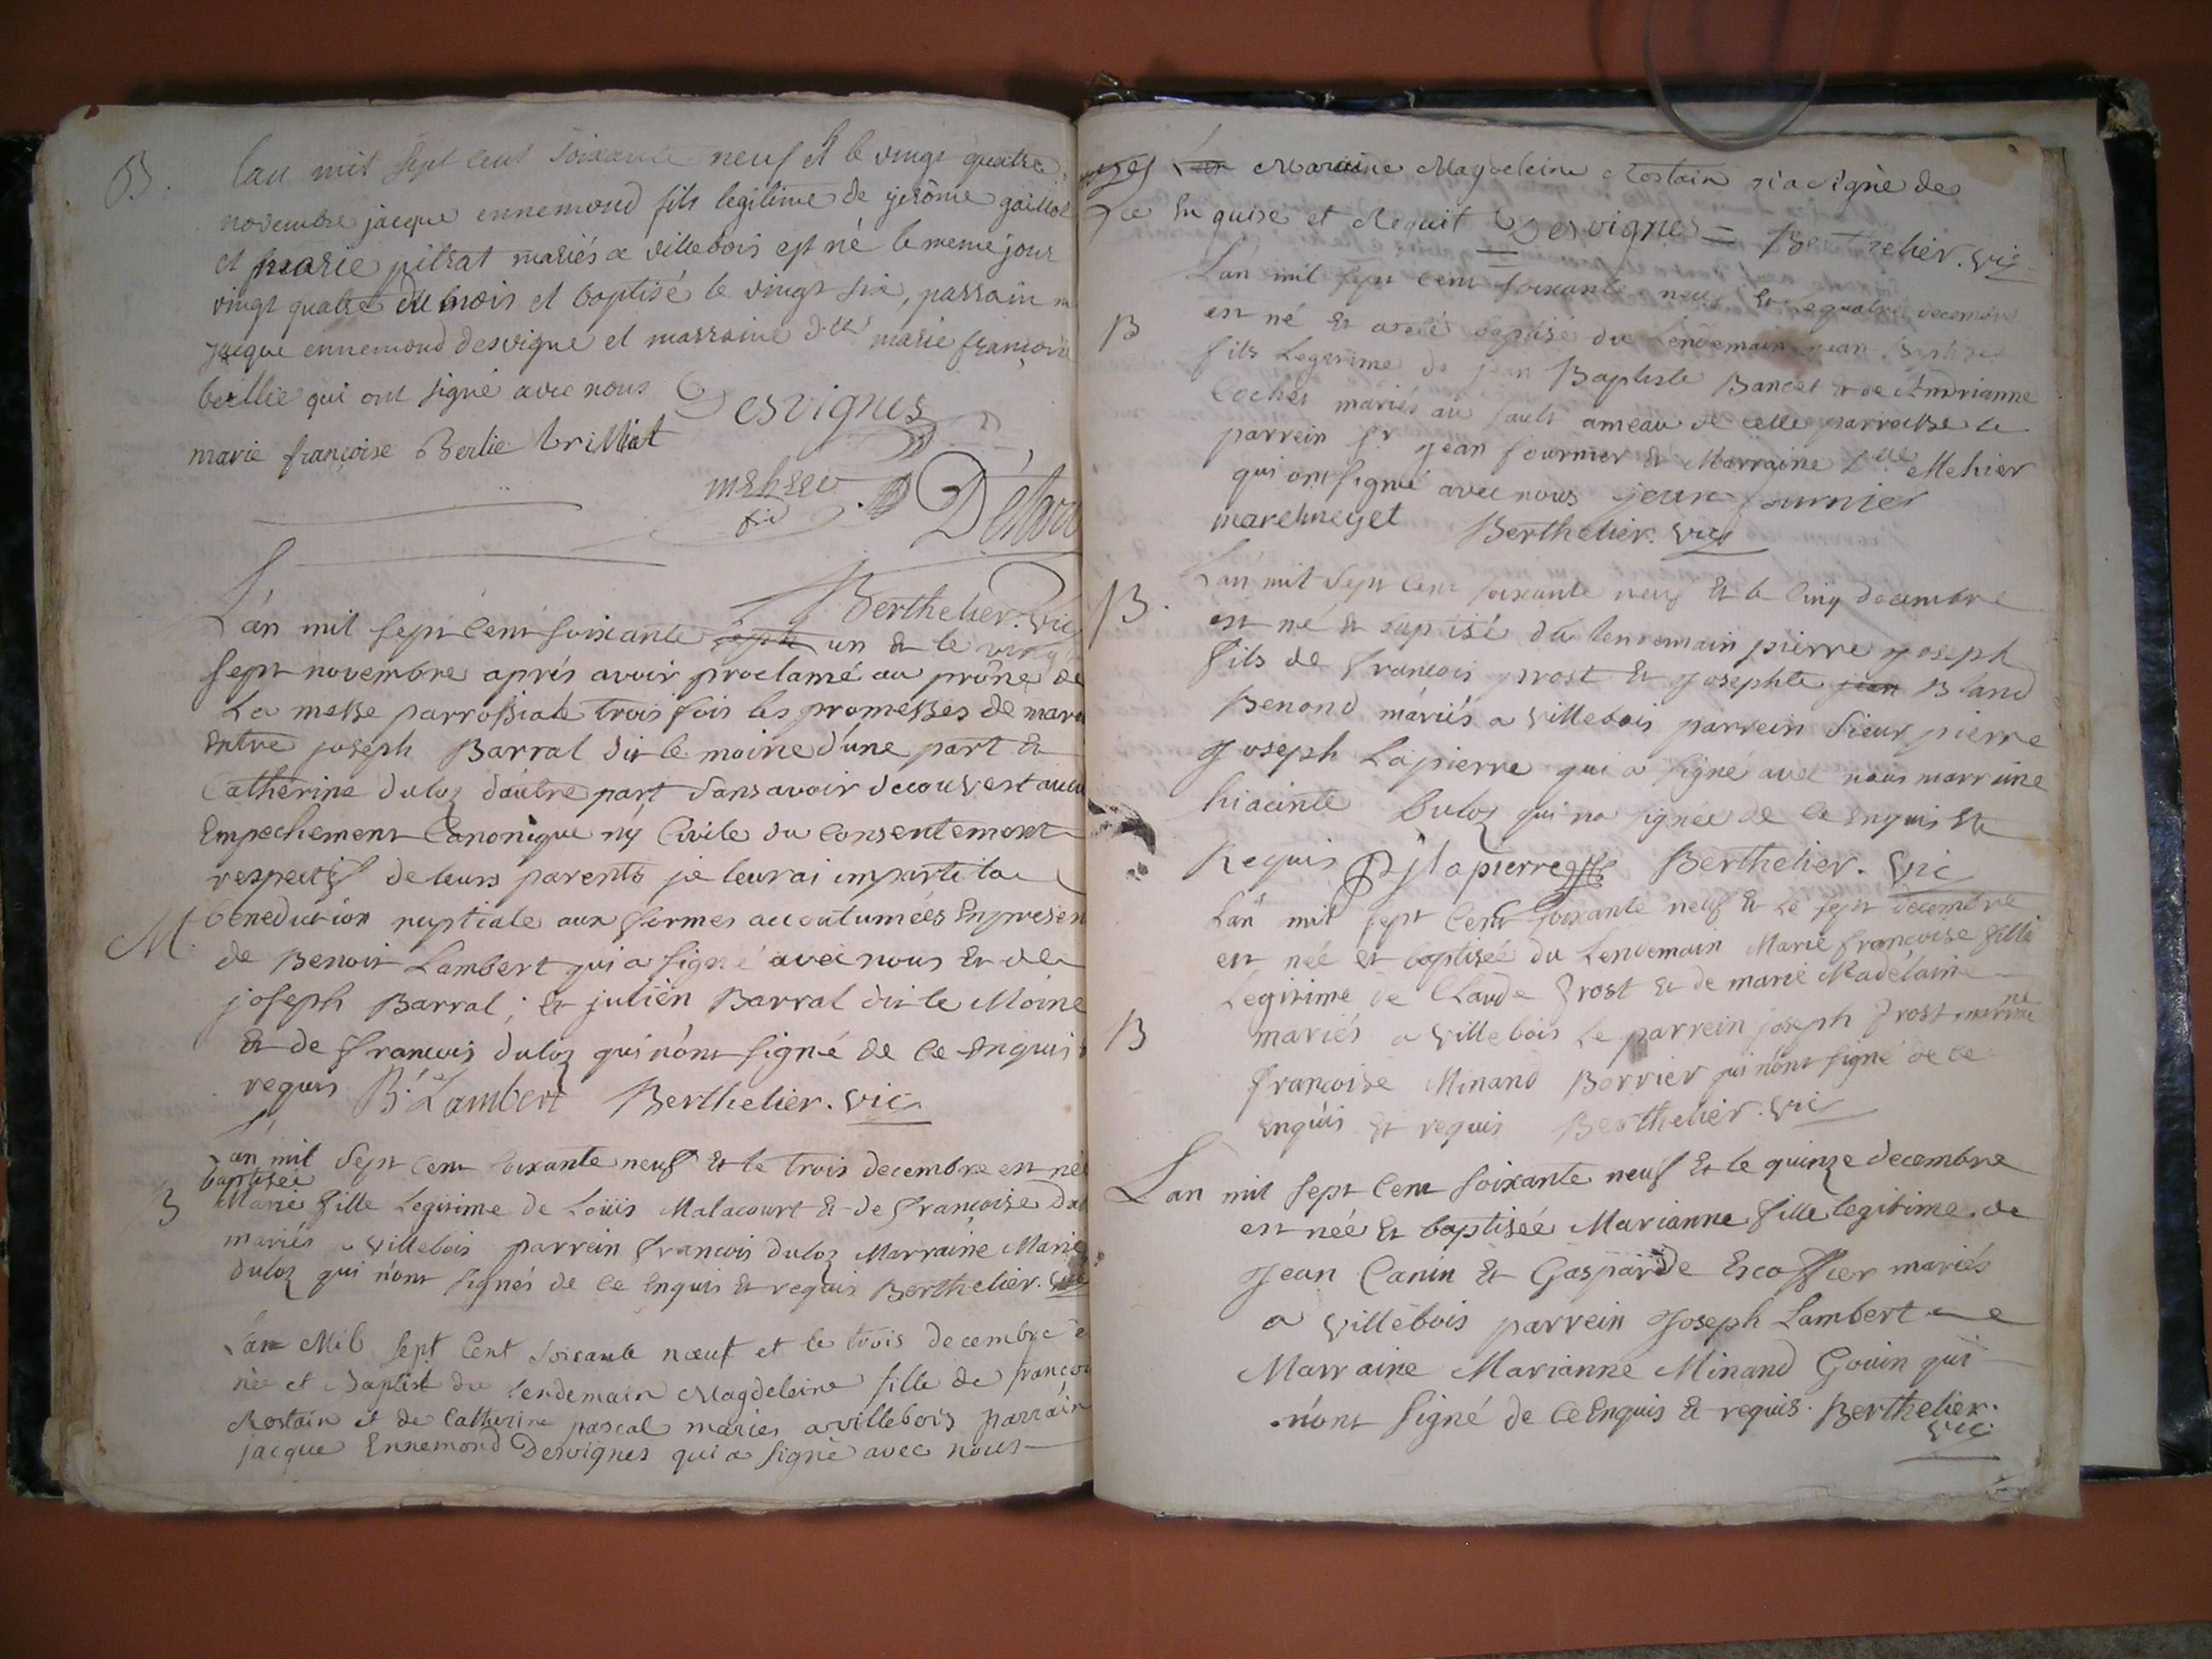 B. lan mil sept cent soixante neuf et le vingt quatre
novembre jacque ennemond fils legitime de jerôme gaillot
et marie pitrat mariés a villebois est né le meme jour
vingt quatre du mois et baptisé le vingt six, parrain
jacque ennemond desvigne et marraine dlle marie françoise
berllie qui ont signé avec nous Desvignes
marie françoise Berlie trilliat
Berthelier. Vic
L'an mil sept cent soixante sept un & le vingt
sept novembre aprés avoir proclamé au prône de
La messe parrossiale trois fois les promesses de mara
Entre joseph Barral dit le moine d'une part &
Catherine duloz d'autre part sans avoir decouvert aucu
Empechement Canonique ny Civile du Consentement
respectif de leurs parents je leurai imparti la
M. benediction nuptiale aux formes accoutumées En presen
de Benoit Lambert qui a signé avec nous & de
joseph Barral; & julien Barral dit le Moine
& de francois duloz qui n'ont signé de ce enquis
requis B. Lambert Berthelier. vic
L'an mil sept cent soixante neuf & le trois decembre est née
baptisée
B Marie fille Legitime de Loüis Malacourt & de françoise dul
mariés a villebois parrein francois duloz Marraine Marie
duloz qui n'ont signés de ce enquis & requis Berthelier. vic
L'an Mil sept Cent soixante nœuf et le trois decembre e
née et Baptisé du lendemain Magdeleine fille de françoi
Rostain et de Catherine pascal maries a villebois parrain
jacque Ennemond Desvignes qui a signé avec nous
Maraine Magdeleine Rostain n'a signé de
ce En quise et Requit Desvignes = Berthelier. vic
L'an mil sept cent soixante neuf & le quatre decembre
B est né & a été baptisé du Lendemain jean Baptiste
fils Legitime de jean Baptiste Bancet & de Andrianne
Cochet mariés au sault ameau de cette parroisse le
parrein Sr jean fournier & Marraine Dlle Mehier
qui ont signé avec nous jean fournier
Berthelier. vic
B. L'an mil sept cent soixante neuf & le Cinq decembre
est né & baptisé du lendemain pierre joseph
fils de francois prost & josephte jean Bland
Benond mariés a villebois parrein sieur pierre
Joseph Lapierre qui a signé avec nous marraine
hiacinte Duloz qui na signée de ce enquis &
Requis Pjlapierre Berthelier. vic
Lan mil sept Cent soixante neuf & le sept decembre
est née et baptisée du Lendemain Marie françoise fille
Legitime de Claude Prost & de marie Madelaine
B mariés a villebois le parrein joseph Prost marraine
françoise Minand Borrier qui n'ont signé de ce
enquis & requis Berthelier. vic
L'an mil sept cent soixante neuf & le quinze decembre
est née & baptisée Marianne fille legitime de
Jean Canin & Gasparde Escoffier mariés
a villebois parrein Joseph Lambert
Marraine Marianne Minand Gouin qui
n'ont signé de ce enquis & requis. Berthelier.
vic